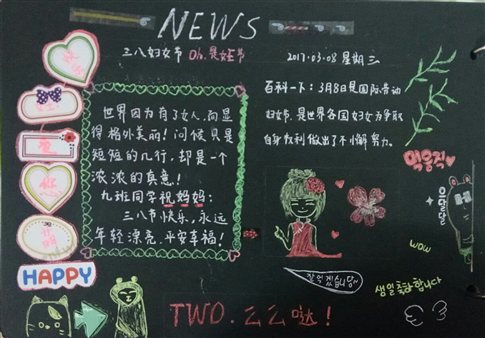 NEWS
三八妇女节 Oh,是女王节
2017.03.08 星期三
世界因为有了女人,而显
得格外美丽!问候只是
短短的几行,却是一个
浓浓的真意!
九班同学祝妈妈:
三八节快乐,永远
年轻漂亮.平安幸福!
百科一下:3月8日是国际劳动
妇女节,是世界各国妇女为争取
自身权利做出了不懈努力。
wow
잘 먹겠습니다.
생일 축하합니다
HAPPY
TWO.么么哒!